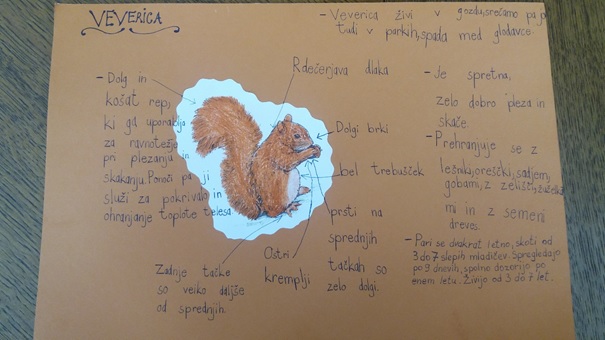 VEVERICA
- Veverica živi v gozdu, srečamo pa jo
tudi v parkih, spada med glodavce.
- Dolg in
košat rep,
ki ga uporablja
za ravnotežje
pri plezanju in
skakanju. Ponoči pa ji
služi za pokrivalo in
ohranjanje toplote telesa
Rdečerjava dlaka
Dolgi brki
bel trebušček
prsti na
sprednjih
tačkah so
zelo dolgi.
Ostri
kremplji
Zadnje tačke
so veliko daljše
od sprednjih.
- Je spretna,
zelo dobro pleza in
skače.
- Prehranjuje se z
lešniki, oreščki, sadjem,
gobami, z zelišči, žuželka
mi in z semeni
dreves.
- Pari se dvakrat letno, skoti od
3 do 7 slepih mladičev. Spregledajo
po 9 dnevih, spolno dozorijo po
enem letu. Živijo od 3 do 7 let.